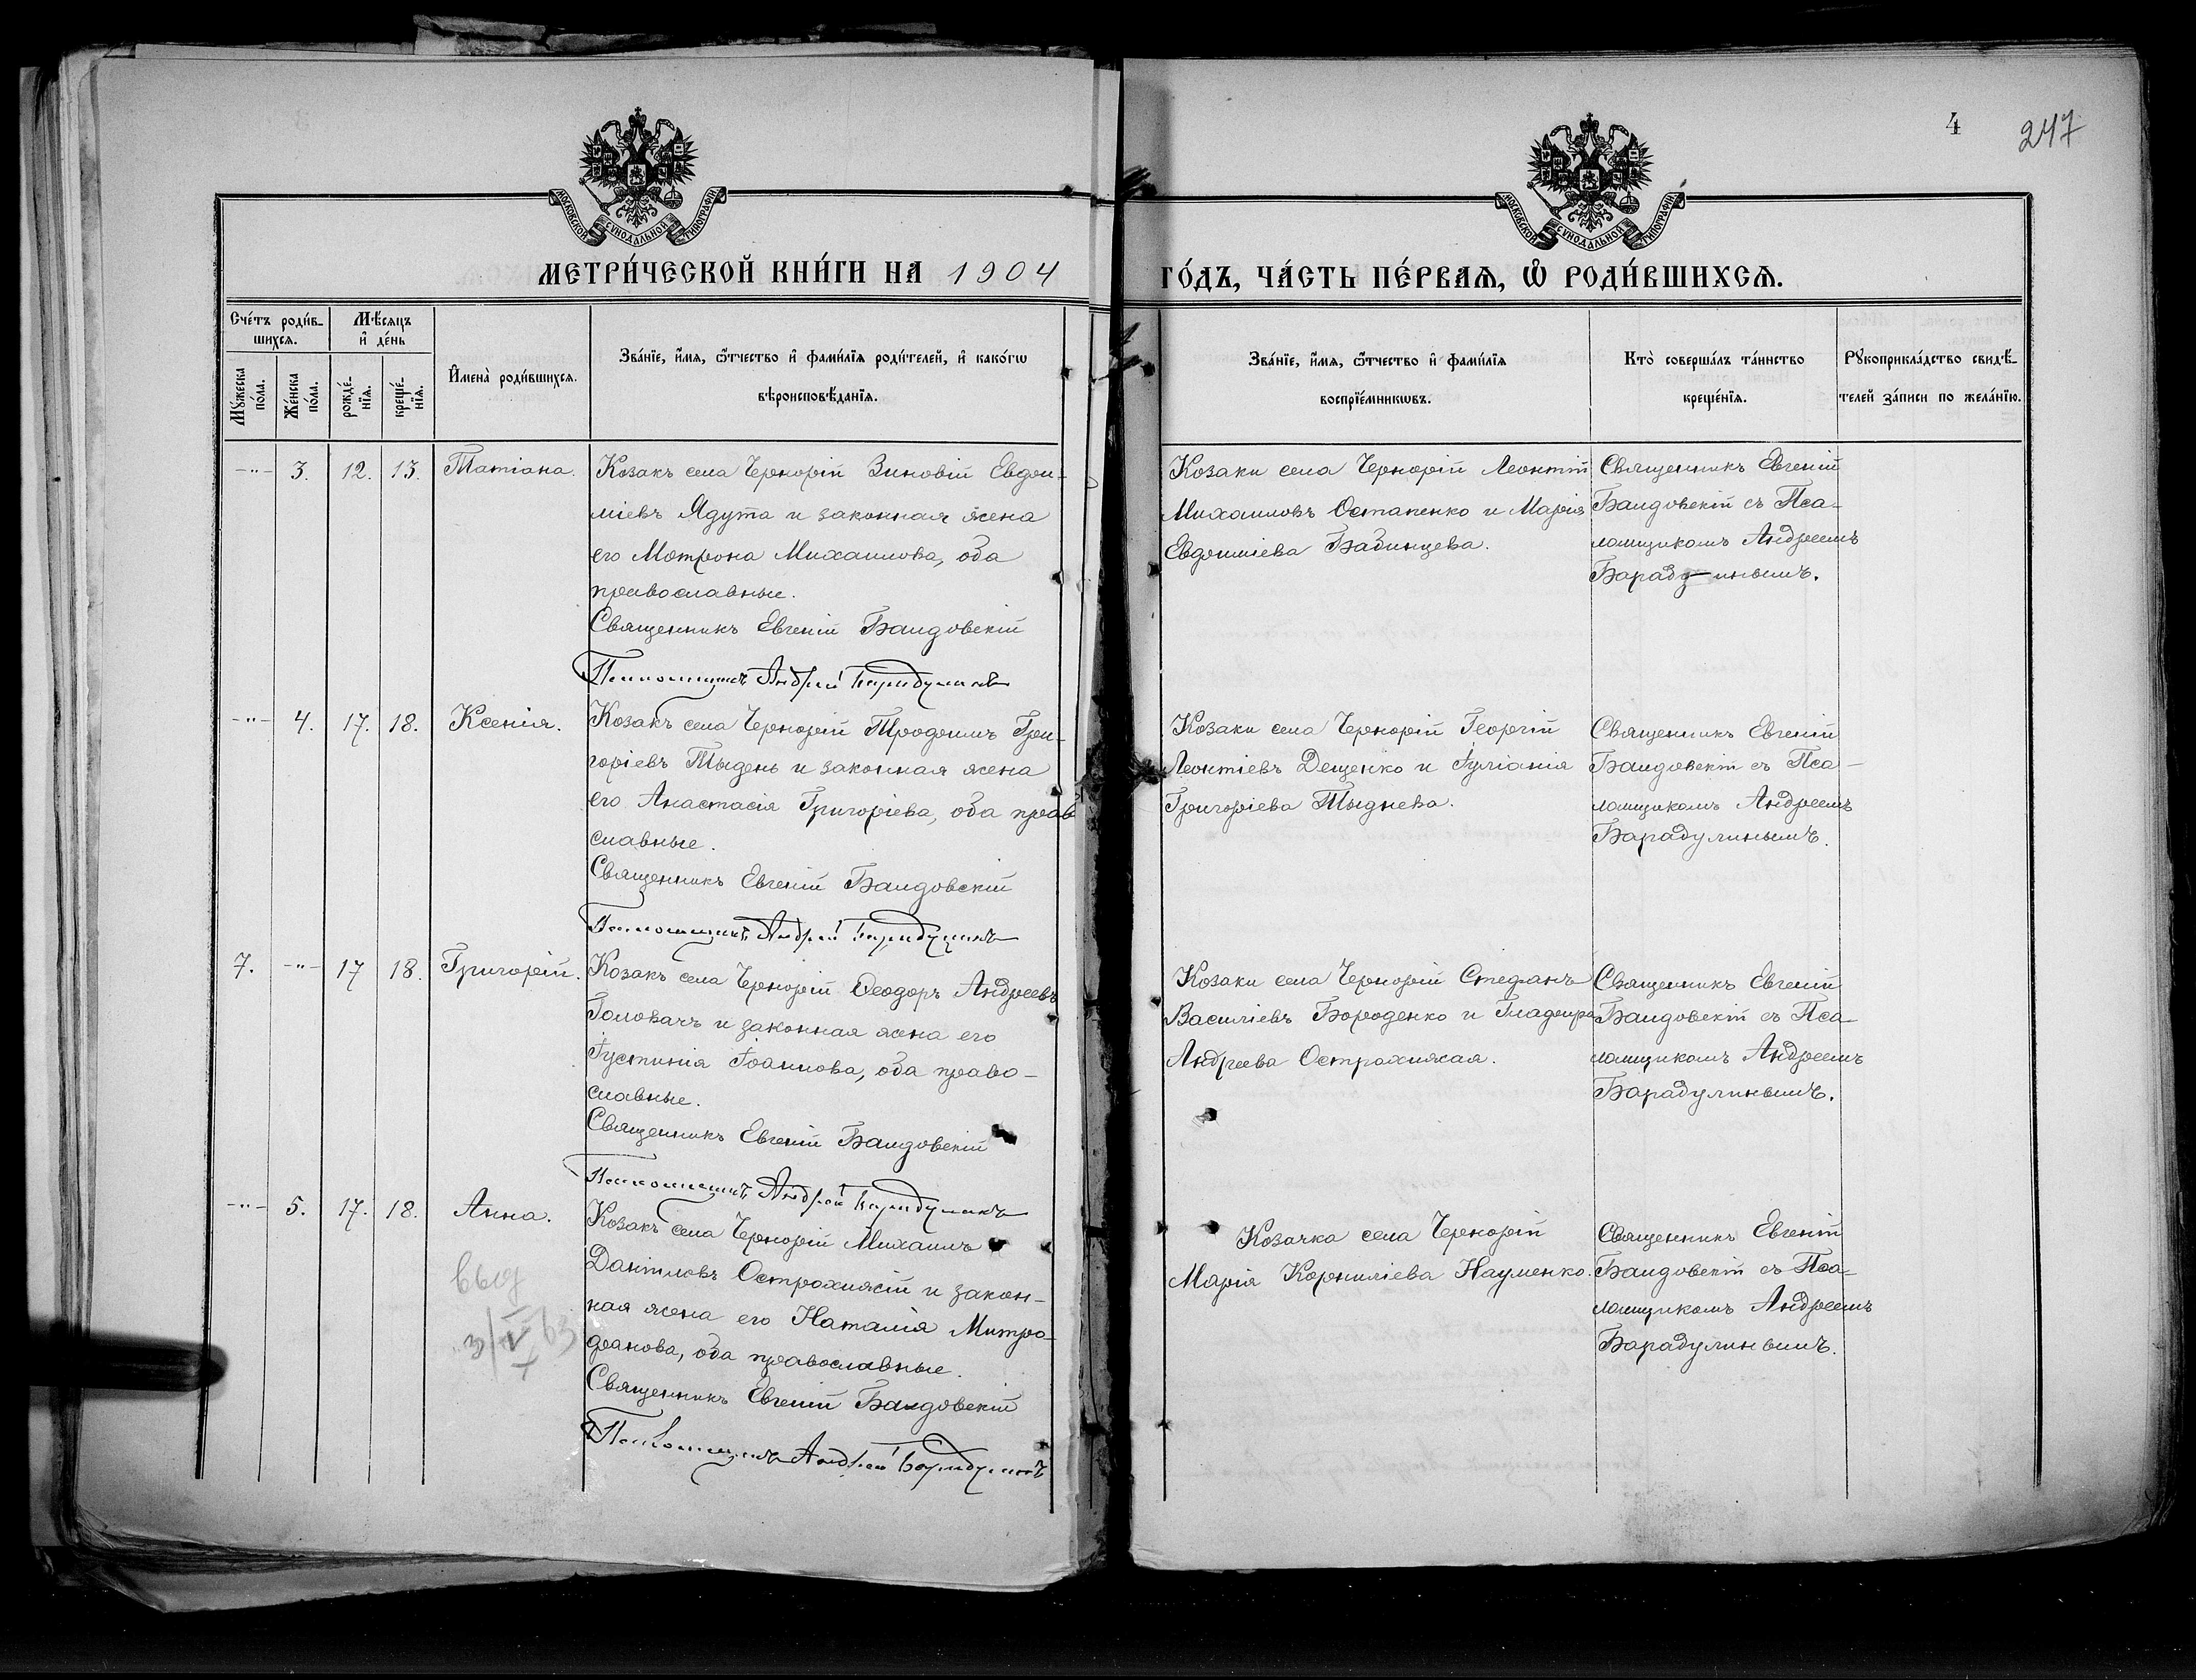 4
247
МОСКОВСКОЙ СѴНОДАЛЬНОЙ ТИПОГРАФІИ
МОСКОВСКОЙ СѴНОДАЛЬНОЙ ТИПОГРАФІИ
МЕТРИ́ЧЕСКОЙ КНИ́ГИ НА 1904
ГО́ДЪ, ЧА́СТЬ ПЕ́РВАЯ, Ѡ҆ РОДИ́ВШИХСЯ.
Сче́тъ роди́в-
шихся.
Мѣ́сяцъ
и҆ де́нь
Мꙋ́жеска
по́ла.
Же́нска
по́ла.
рожде́-
нїя.
креще́-
нїя.
И҆мена̀ роди́вшихся.
Зва́нїе, и҆́мя, ѻ҆́тчество и҆ фами́лїя роди́телей, и҆ како́гѡ
вѣроисповѣ́данїя.
Зва́нїе, и҆́мя, ѻ҆́тчество и҆ фами́лїя
воспрїе́мникѡвъ.
Кто̀ соверша́лъ та́инство
креще́нїя.
Рꙋкоприкла́дство свидѣ́-
телей за́писи по жела́нїю.
-"- 3. 12. 13. Татіана.
Козакъ села Чернорій Зиновій Евдои-
міевъ Ядута и законная жена
его Мотрона Михаилова, оба
православные.
Священникъ Евгеній Баидовскій
Псаломщикъ Андрей Барадулинъ
Козаки села Чернорій Леонтій
Михаиловъ Остапенко и Марія
Евдоиміева Бабинцева.
Священникъ Евгеній
Баидовскій съ Пса-
ломщикомъ Андреемъ
Бараду-инымъ.
-"- 4. 17. 18. Ксенія.
Козакъ села Чернорій Трофимъ Гри-
горіевъ Тыдень и законная жена
его Анастасія Григоріева, оба прав
славные.
Священникъ Евгеній Баидовскій
Псаломщикъ Андрей Барадулинъ
Козаки села Чернорій Георгій
Леонтіевъ Дещенко и Іуліанія
Григоріева Тыднева.
Священникъ Евгеній
Баидовскій съ Пса-
ломщикомъ Андреемъ
Барадулинымъ.
7. -"- 17 18. Григорій.
Козакъ села Чернорій Ѳеодоръ Андреевъ
Головачъ и законная жена его
Іустинія Іоаннова, оба право-
славные.
Священникъ Евгеній Баидовскій
Псаломщикъ Андрей Барадулинъ
Козаки села Чернорій Стефанъ
Василіевъ Бороденко и Гладфира
Андреева Острохижая.
Священникъ Евгеній
Баидовскій съ Пса-
ломщикомъ Андреемъ
Барадулинымъ.
-"- 5. 17. 18. Анна.
выд
Козакъ села Чернорій Михаилъ
Даніиловъ Острохижій и закон-
ная жена его Наталія Митро-
фанова, оба православные.
Священникъ Евгеній Баидовскій
Псаломщикъ Андрей Барадулинъ
Козачка села Чернорій
Марія Корниліева Науменко.
Священникъ Евгеній
Баидовскій съ Пса-
ломщикомъ Андреемъ
Барадулинымъ.